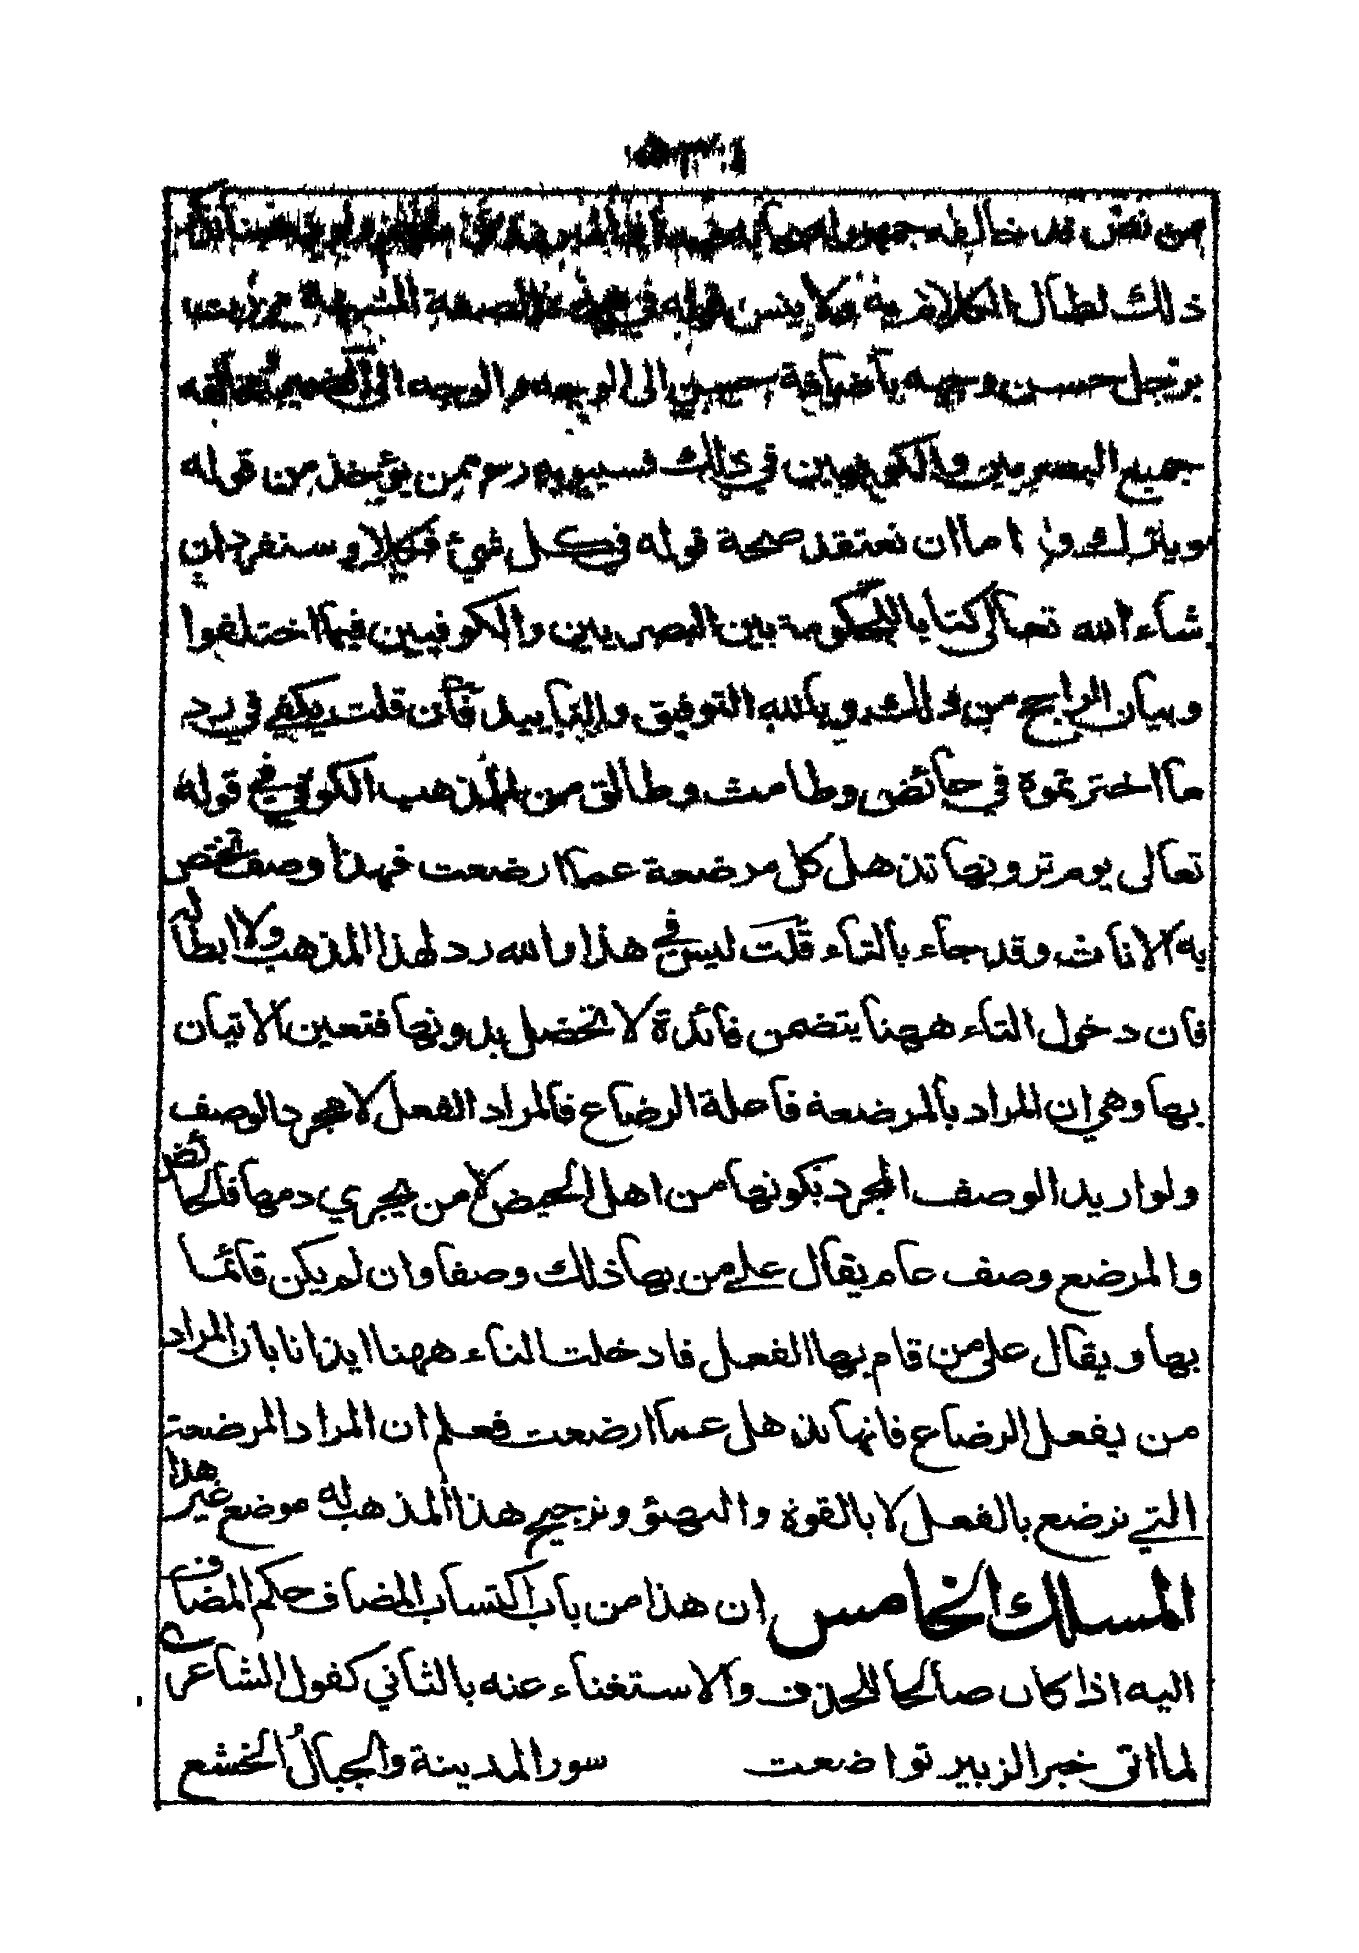 من نص قد خالفه جمهور اصحابه
ذلك لطال الكلام فيه ولا ينس قوله في هذه الصفة المشبهة مررت
برجل حسن وجهه باضافة حسن الى الوجه والوجه الى الضمير مخالفه
جميع البصريين والكوفيين في ذلك فسيبويه رح ممن يؤخذ من قوله
ويترك واما ان نعتقد صحة قوله في كل شئ فكلا وسنفرد ان
شاء الله تعالى كتابا للحكومة بين البصريين والكوفيين فيما اختلفوا
وبيان الراجح من ذلك وبالله التوفيق والتاييد فأن قلت يكفي في رد
ما اخترتموة في حائض وطامث وطالق من المذهب الكوفي قوله
تعالى يوم ترونها تذهل كل مرضعة عما ارضعت فهذا وصف تختص
به الاناث وقد جاء بالتاء قلت ليس في هذا والله رد لهذا المذهب ولا ابطاله
فان دخول التاء ههنا يتضمن فائدة لا تحصل بدونها فتعين الاتيان
بها وهي ان المراد بالمرضعة فاعلة الرضاع فالمراد الفعل لا مجرد الوصف
ولو اريد الوصف المجرد بكونها من اهل الحيض لا من يجري دمها فالحائض
والمرضع وصف عام يقال على من بها ذلك وصفا وان لم يكن قائما
بها ويقال على من قام بها الفعل فادخلت التاء ههنا ايذانا بان المراد
من يفعل الرضاع فانها تذهل عما ارضعت فعلم ان المراد المرضعة
التي ترضع بالفعل لا بالقوة والتهيؤ وترجيح هذا المذهب له موضع غير هذا
المسلك الخامس ان هذا من باب اكتساب المضاف حكم المضاف
اليه اذا كان صالحا للحذف والاستغناء عنه بالثاني كقول الشاعر
لما اتى خبر الزبير تواضعت سور المدينة والجبال الخشع